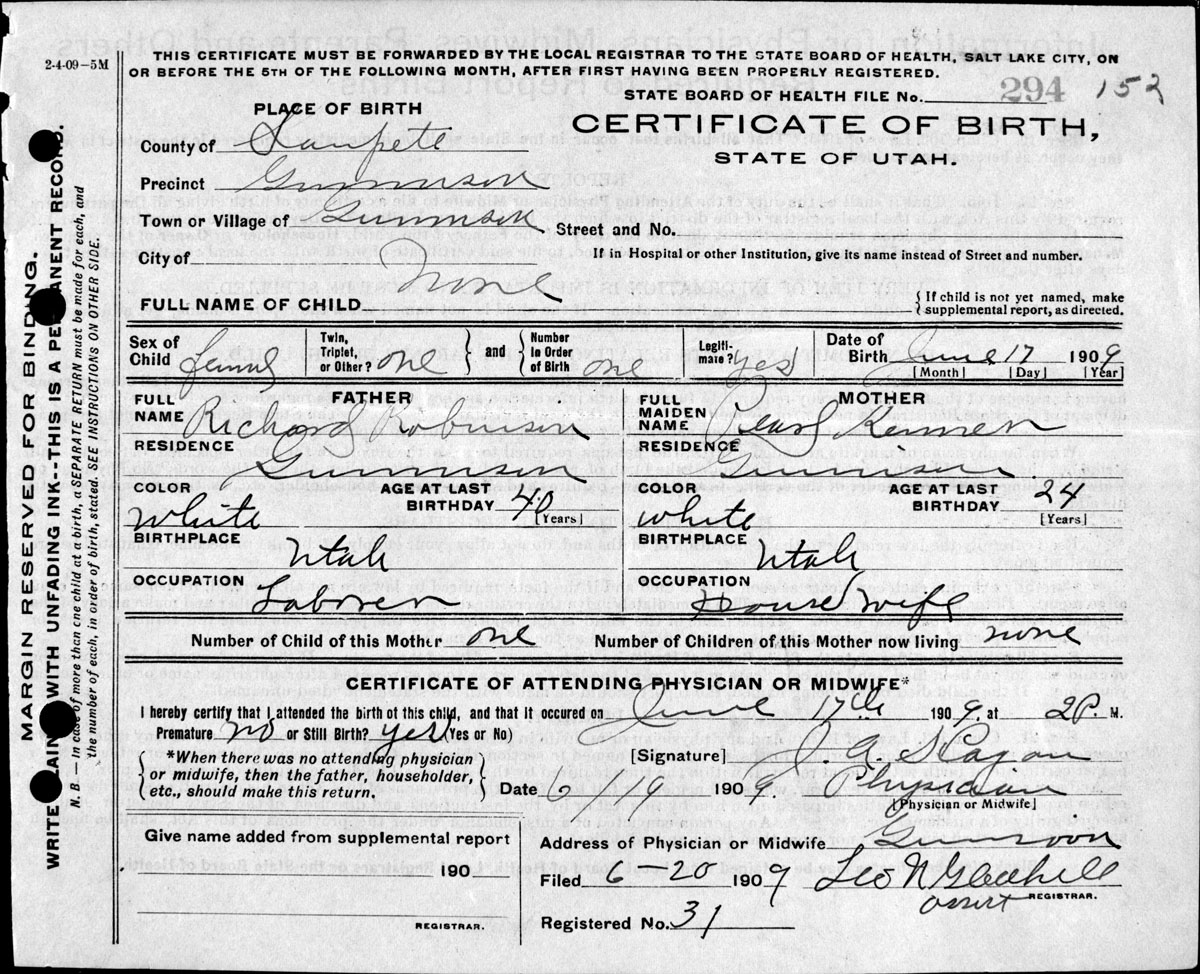 2-4-09-5M
THIS CERTIFICATE MUST BE FORWARDED BY THE LOCAL REGISTRAR TO THE STATE BOARD OF HEALTH, SALT LAKE CITY, ON
OR BEFORE THE 5TH OF THE FOLLOWING MONTH, AFTER FIRST HAVING BEEN PROPERLY REGISTERED.
STATE BOARD OF HEALTH FILE No. 294 152
PLACE OF BIRTH
CERTIFICATE OF BIRTH,
STATE OF UTAH.
County of Sanpete
Precinct Gunnison
Town or Village of Gunnison Street and No.
City of If in Hospital or other Institution, give its name instead of Street and number.
FULL NAME OF CHILD None { If child is not yet named, make
supplemental report, as directed.
Sex of
Child Female
Twin,
Triplet,
or Other? one } and { Number
in Order
of Birth one
Legiti-
mate? yes
Date of
Birth June 17 1909
[Month] [Day] [Year]
FATHER
FULL
NAME Richard Robinson
RESIDENCE
Gunnison
COLOR
White
AGE AT LAST
BIRTHDAY 40
[Years]
BIRTHPLACE
Utah
OCCUPATION
Laborer
MOTHER
FULL
MAIDEN
NAME Pearl
RESIDENCE
Gunnison
COLOR
white
AGE AT LAST
BIRTHDAY 24
[Years]
BIRTHPLACE
Utah
OCCUPATION
House wife
Number of Child of this Mother one Number of Children of this Mother now living none
CERTIFICATE OF ATTENDING PHYSICIAN OR MIDWIFE*
I hereby certify that I attended the birth of this child, and that it occured on June 17th 1909, at 2P. M.
Premature no or Still Birth? yes (Yes or No)
*When there was no attending physician
or midwife, then the father, householder,
etc., should make this return.
[Signature] J. A. Hagan
Date 6 19 1909, Physician
[Physician or Midwife]
Give name added from supplemental report
190
REGISTRAR.
Address of Physician or Midwife Gunnison
Filed 6-20 1909 Leo N Gledhill
assist REGISTRAR.
Registered No. 31
MARGIN RESERVED FOR BINDING.
WRITE PLAINLY WITH UNFADING INK--THIS IS A PERMANENT RECORD.
N. B.—In case of more than one child at a birth, a SEPARATE RETURN must be made for each, and
the number of each, in order of birth, stated. SEE INSTRUCTIONS ON OTHER SIDE.